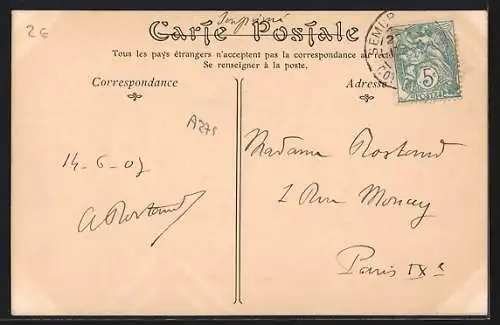 2 €
Imprimé
Carte Postale
Tous les pays étrangers n'acceptent pas la correspondance au recto
Se renseigner à la poste.
Correspondance
Adresse
SEMUR
5c
POSTES
A275
14-6-07
A Rostand
Madame Rostand
2 Rue Moncey
Paris IXe